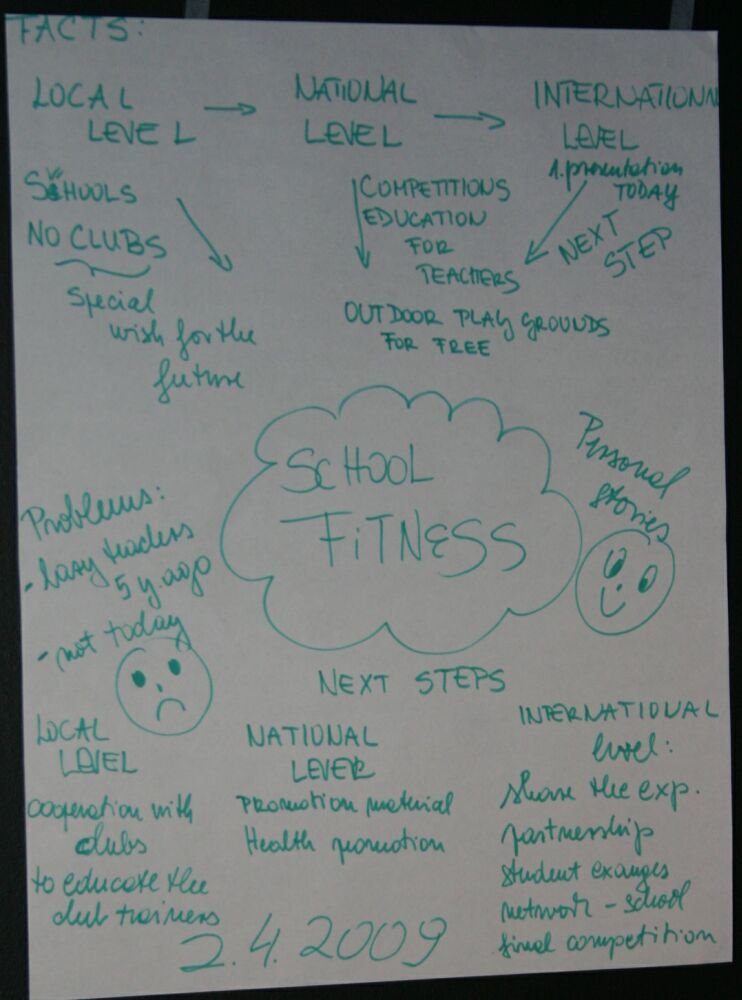 FACTS:
LOCAL
LEVEL
→ NATIONAL
LEVEL
→ INTERNATIONAL
LEVEL
1. presentation
TODAY
SCHOOLS
NO CLUBS
Special
wish for the
future
COMPETITIONS
EDUCATION
FOR
TEACHERS
NEXT
STEP
OUTDOOR PLAY GROUNDS
FOR FREE
SCHOOL
FITNESS
Personal
stories
Problems:
- lazy teachers
5 y. ago
- not today
NEXT STEPS
LOCAL
LEVEL
cooperation with
clubs
to educate the
club trainers
NATIONAL
LEVER
Promotion material
Health promotion
INTERNATIONAL
level:
share the exp.
partnership
student exanges
network - school
final competition
2.4.2009